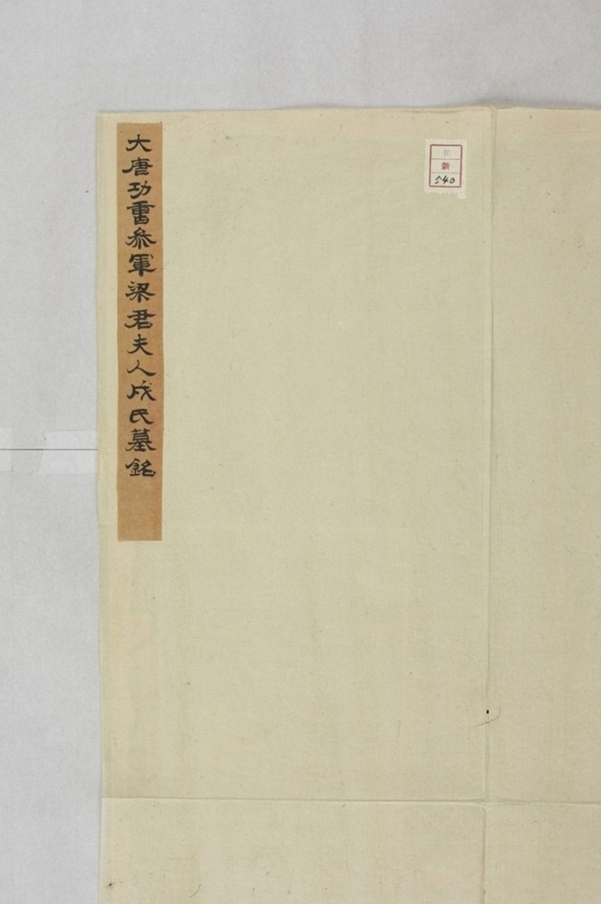 大唐功曹叅軍梁君夫人成氏墓銘
540